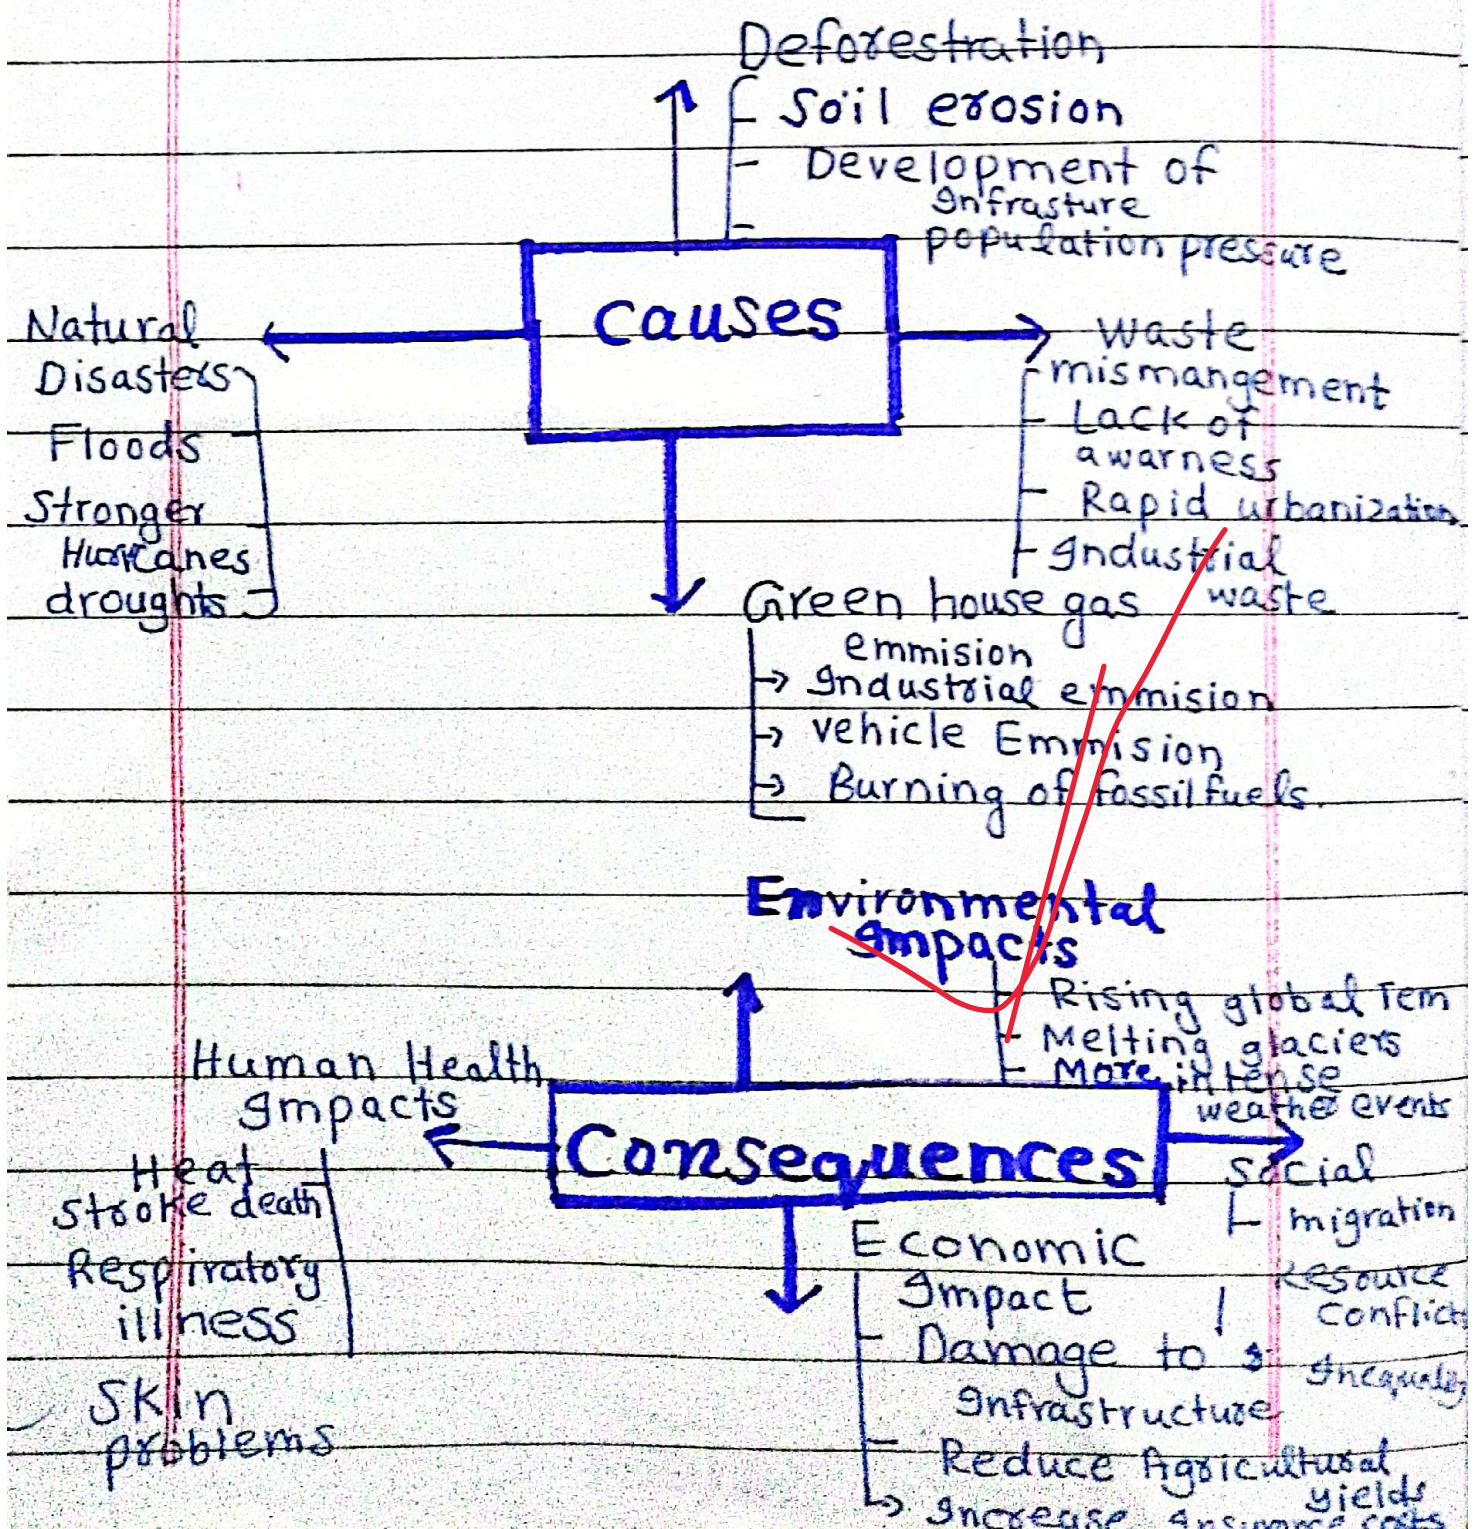 Deforestration
Soil erosion
Development of
Infrasture
population pressure
Causes
Natural
Disasters
Floods
Stronger
Hurricanes
droughts
Waste
mismangement
Lack of
awarness
Rapid urbanization
Industrial
waste
Green house gas
emmision
Industrial emmision
vehicle Emmision
Burning of fossil fuels.
Environmental
Impacts
Rising global Tem
Melting glaciers
More intense
weather events
Human Health
Impacts
Heat
stroke death
Respiratory
illness
Skin
problems
Consequences
Social
migration
Resource
Conflict
Economic
Impact
Damage to
Infrastructure
Reduce Agricultural
yields
Increase Insurance costs